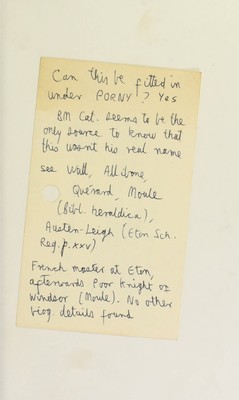 Can this be fitted in
under PORNY? Yes
BM Cat. seems to be the
only source to know that
this wasnt his real name
see Watt, Allibone,
Quérard, Moule
(Bibl. heraldica),
Austen-Leigh (Eton Sch.
Reg. p. xxv)
French master at Eton,
afterwards Poor Knight of
Windsor (Moule). No other
biog. details found